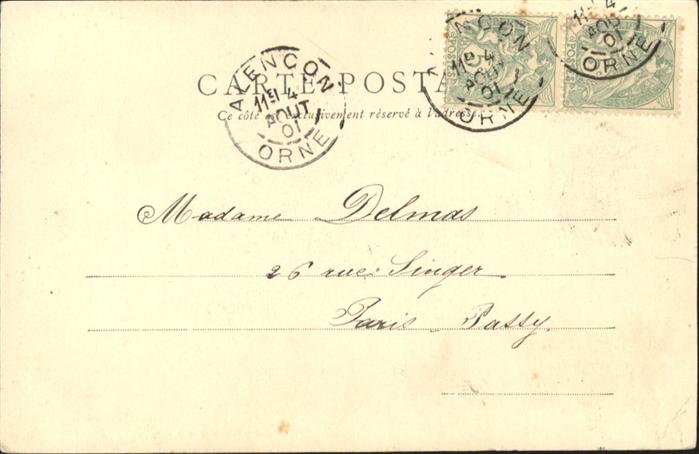 CARTE POSTA
Ce côté exclusivement réservé à l'adresse
ALENÇON
11E 4
AOUT
01
ORNE
ENÇON
11E 4
AOUT
01
ORNE
POSTES
4
AOUT
01
ORNE
Madame Delmas
26 rue Singer
Paris-Passy